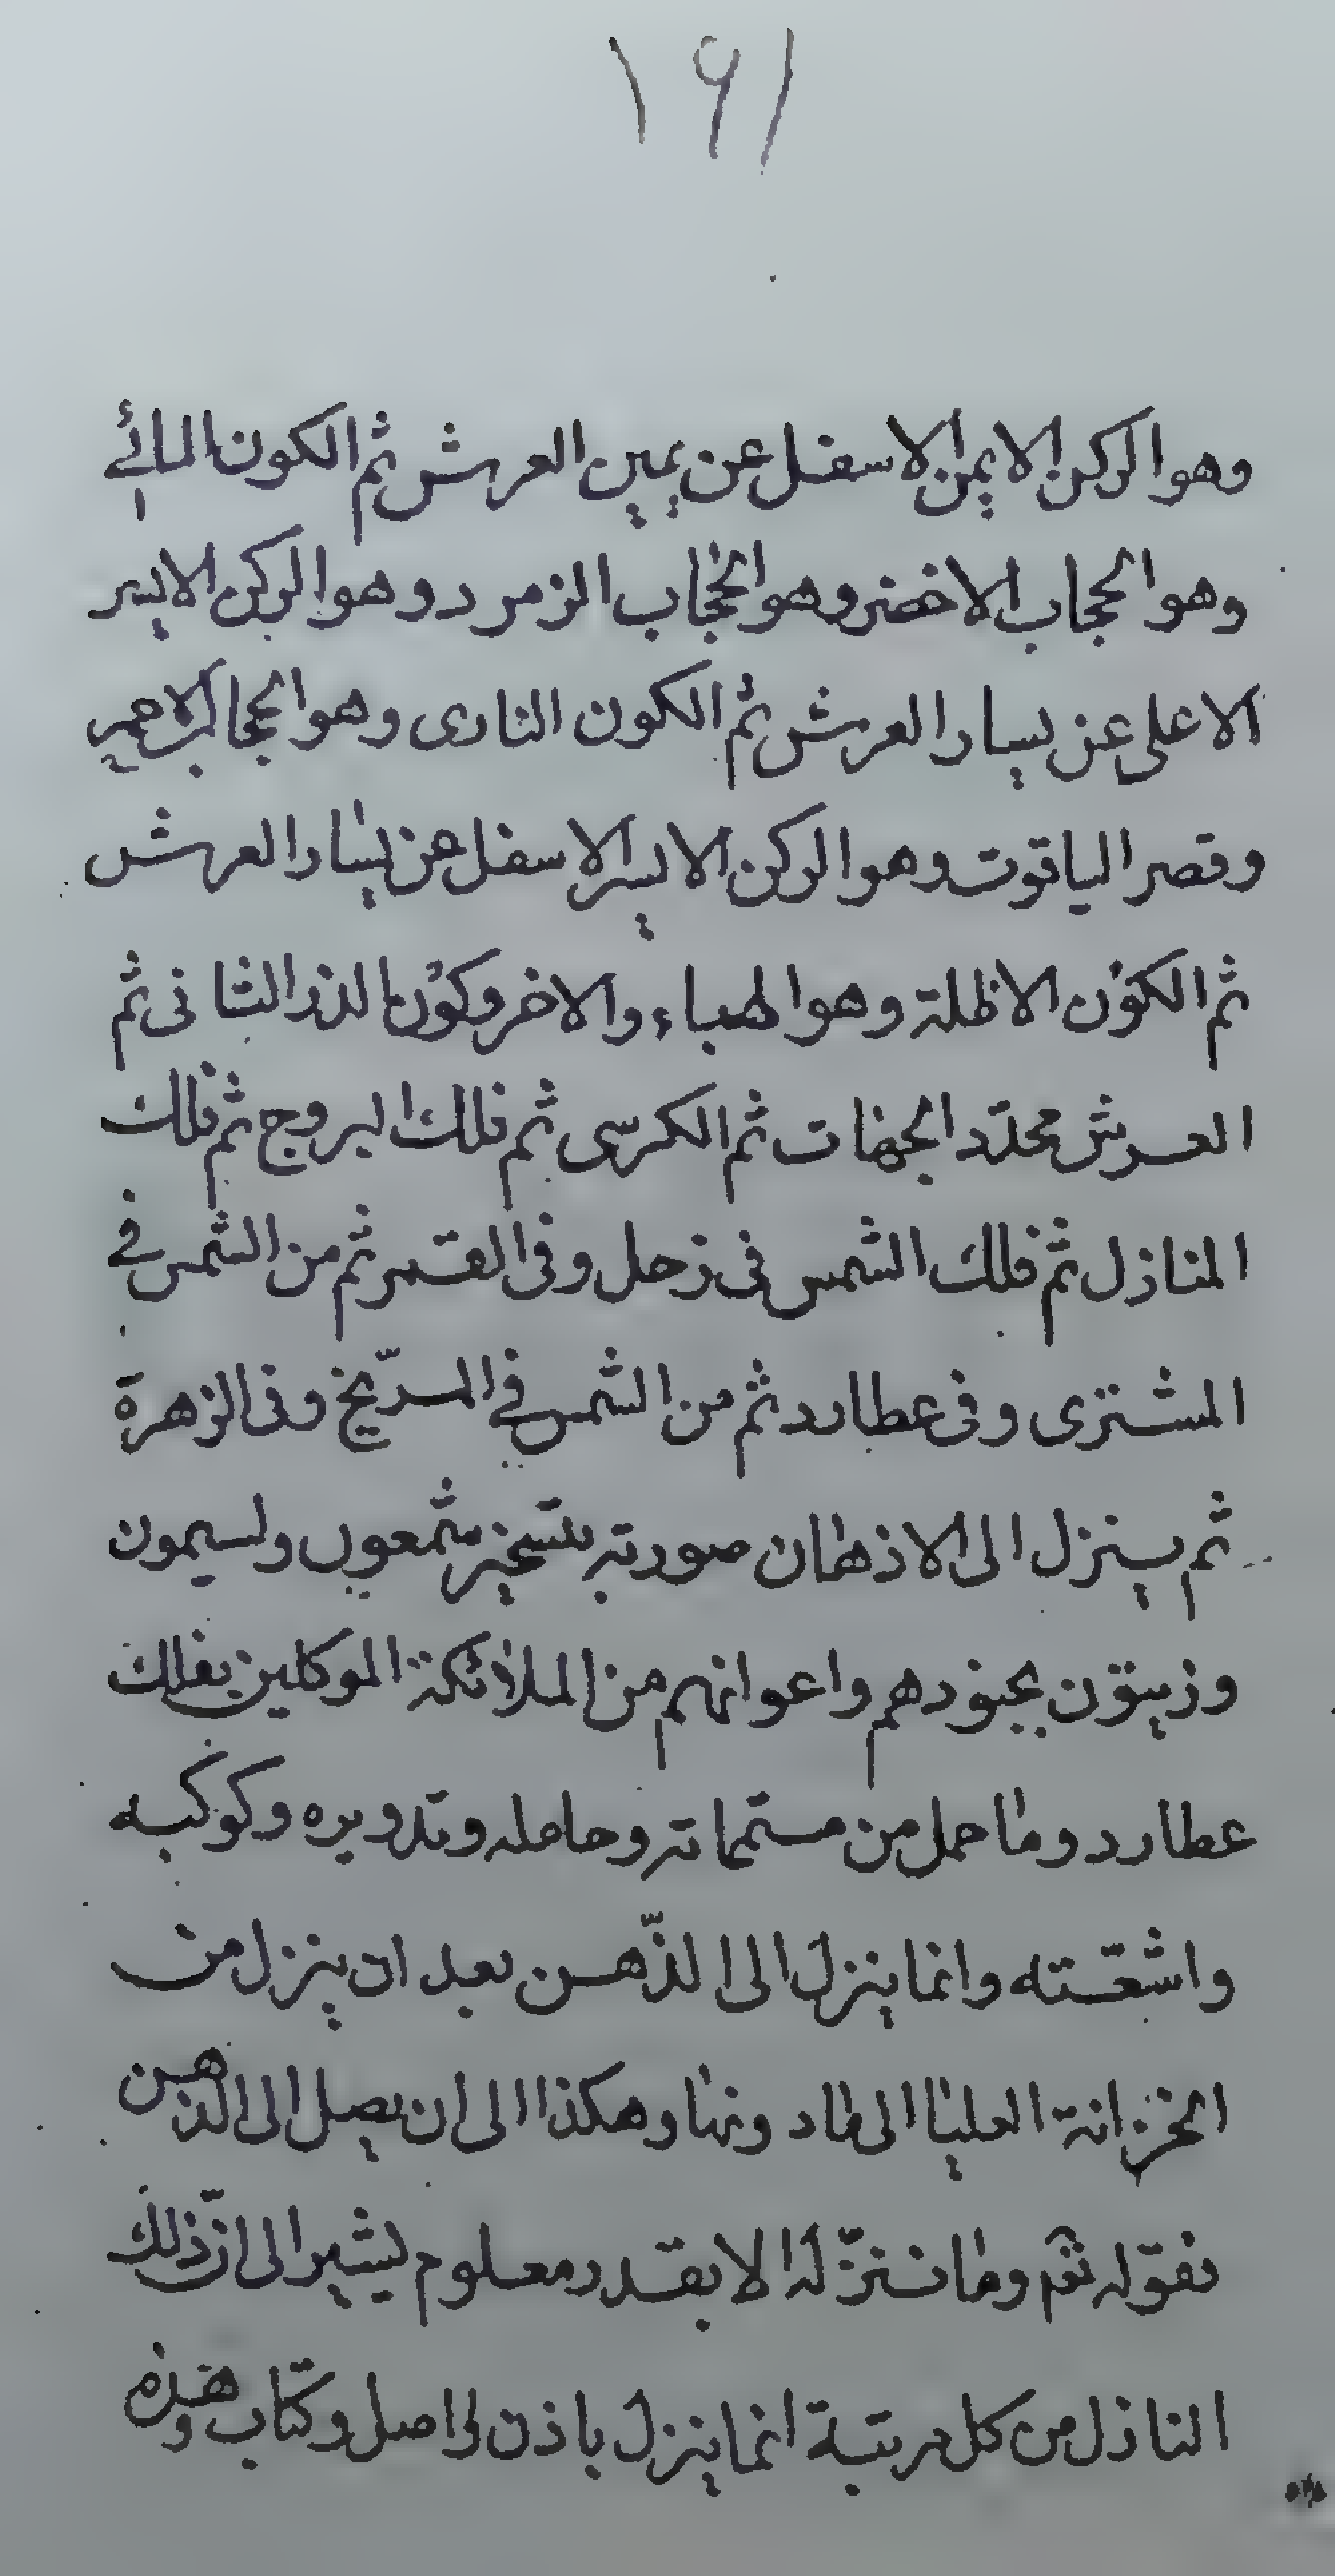 ١٩١
وهو الركن الايمن الاسفل عن يمين العرش ثم الكون المائي
وهو الحجاب الاخضر وهو الحجاب الزمرد وهو الركن الايسر
الاعلى عن يسار العرش ثم الكون النارى وهو الحجاب الاحمر
وقصر الياقوت وهو الركن الايسر الاسفل عن يسار العرش
ثم الكون الاظلة وهو الهباء والاخر وكون الذر الثانى ثم
العرش محدّد الجهات ثم الكرسى ثم فلك البروج ثم فلك
المنازل ثم فلك الشمس فى زحل وفى القمر ثم من الشمس في
المشترى وفى عطارد ثم من الشمس في المرّيخ وفى الزهرة
ثم ينزل الى الاذهان صورته بتسخير شمعون ولسيمون
وزيتون بجنودهم واعوانهم من الملائكة الموكلين بفلك
عطارد وما حمل من متمماته وحامله وتدويره وكوكبه
واشعّته وانما ينزل الى الذّهن بعد ان ينزل من
الخزانة العليا الى ما دونها وهكذا الى ان يصل الى الذهن
فقوله تعم وما ننزّله الا بقدر معلوم يشير الى انّ ذلك
النازل من كل مرتبة انما ينزل باذن واصل وكتاب وهذه